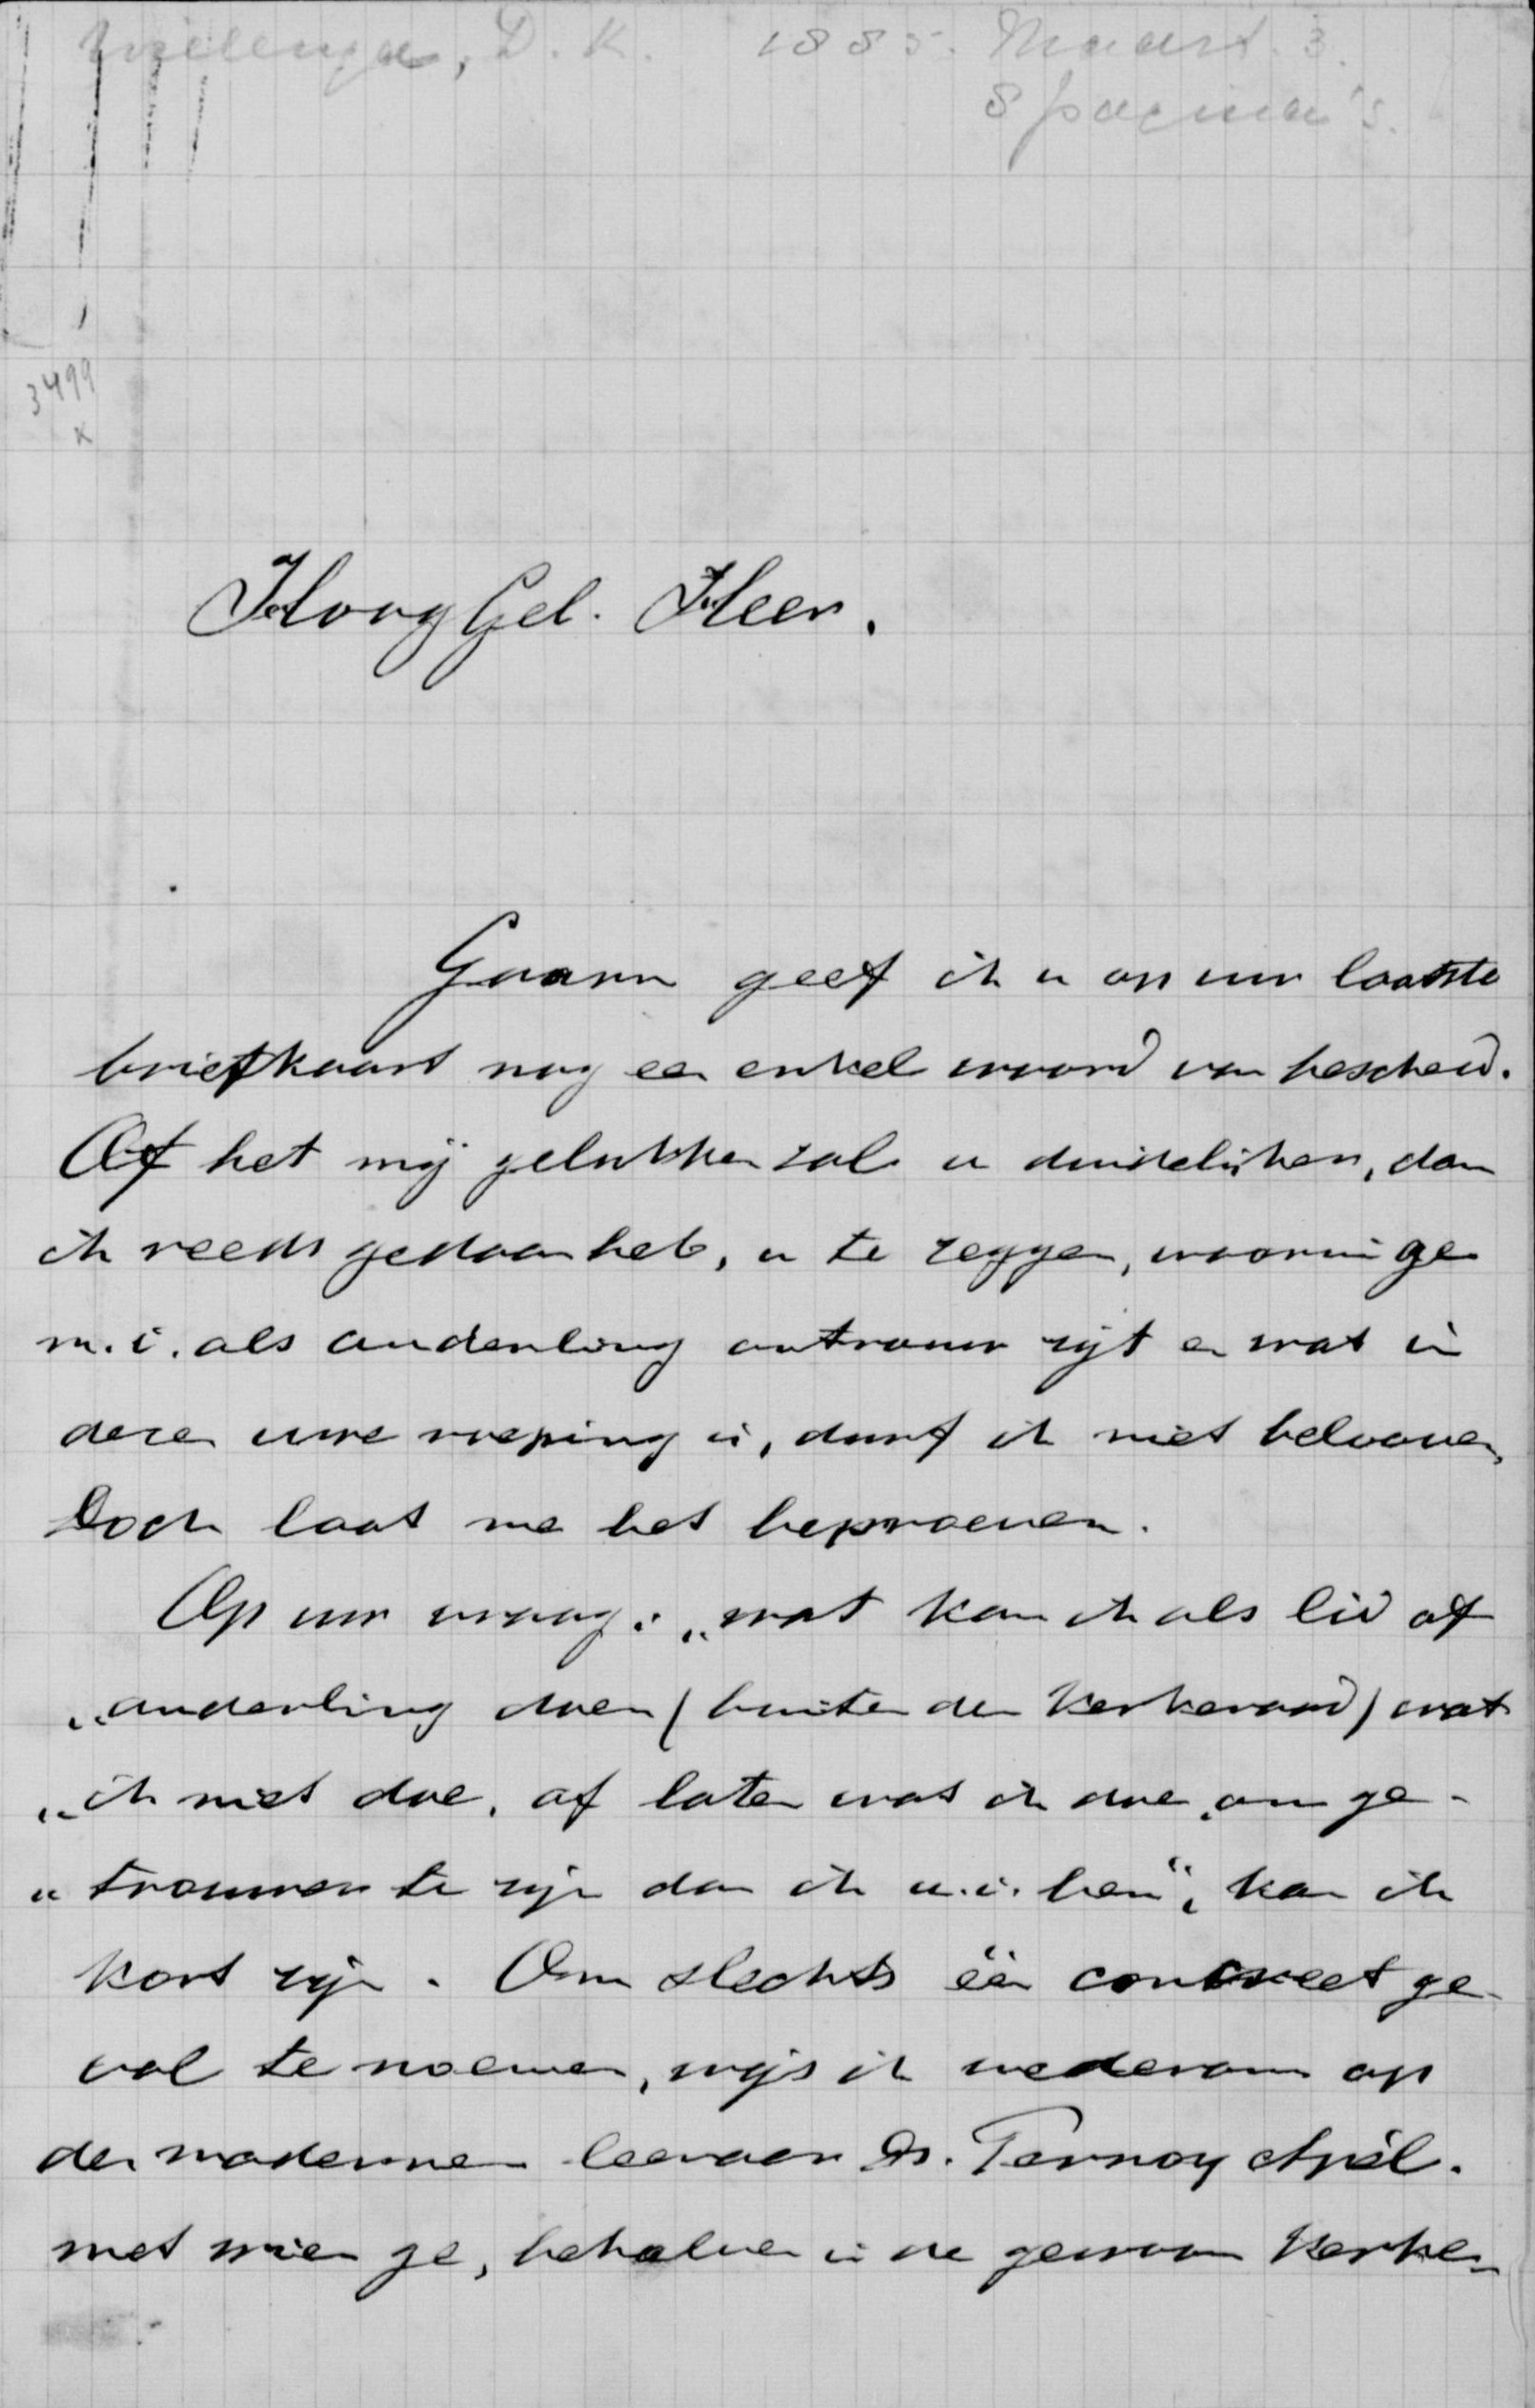 Wielenga, D. K. 1885. Maart. 3.
8 pagina's.
3499
x
HoogGel. Heer.
Gaarne geef ik u op uw laatste
briefkaart nog een enkel woord van bescheid.
Of het mij gelukken zal u duidelijker, dan
ik reeds gedaan heb, u te zeggen, waarin ge
m.i. als ouderling ontrouw zijt en wat in
dezen uwe roeping is, durf ik niet belooven.
Doch laat me het beproeven.
Op uw vraag: „wat kan ik als lid of
„ouderling doen (buiten den Kerkeraad) wat
„ik niet doe, of laten wat ik doe, om ge-
„trouwer te zijn dan ik u.i. ben", kan ik
kort zijn. Om slechts één concreet ge-
val te noemen, wijs ik wederom op
den modernen leeraar Ds. Ternooy Apèl.
met wien ge, behalve in de gewoon Kerke-